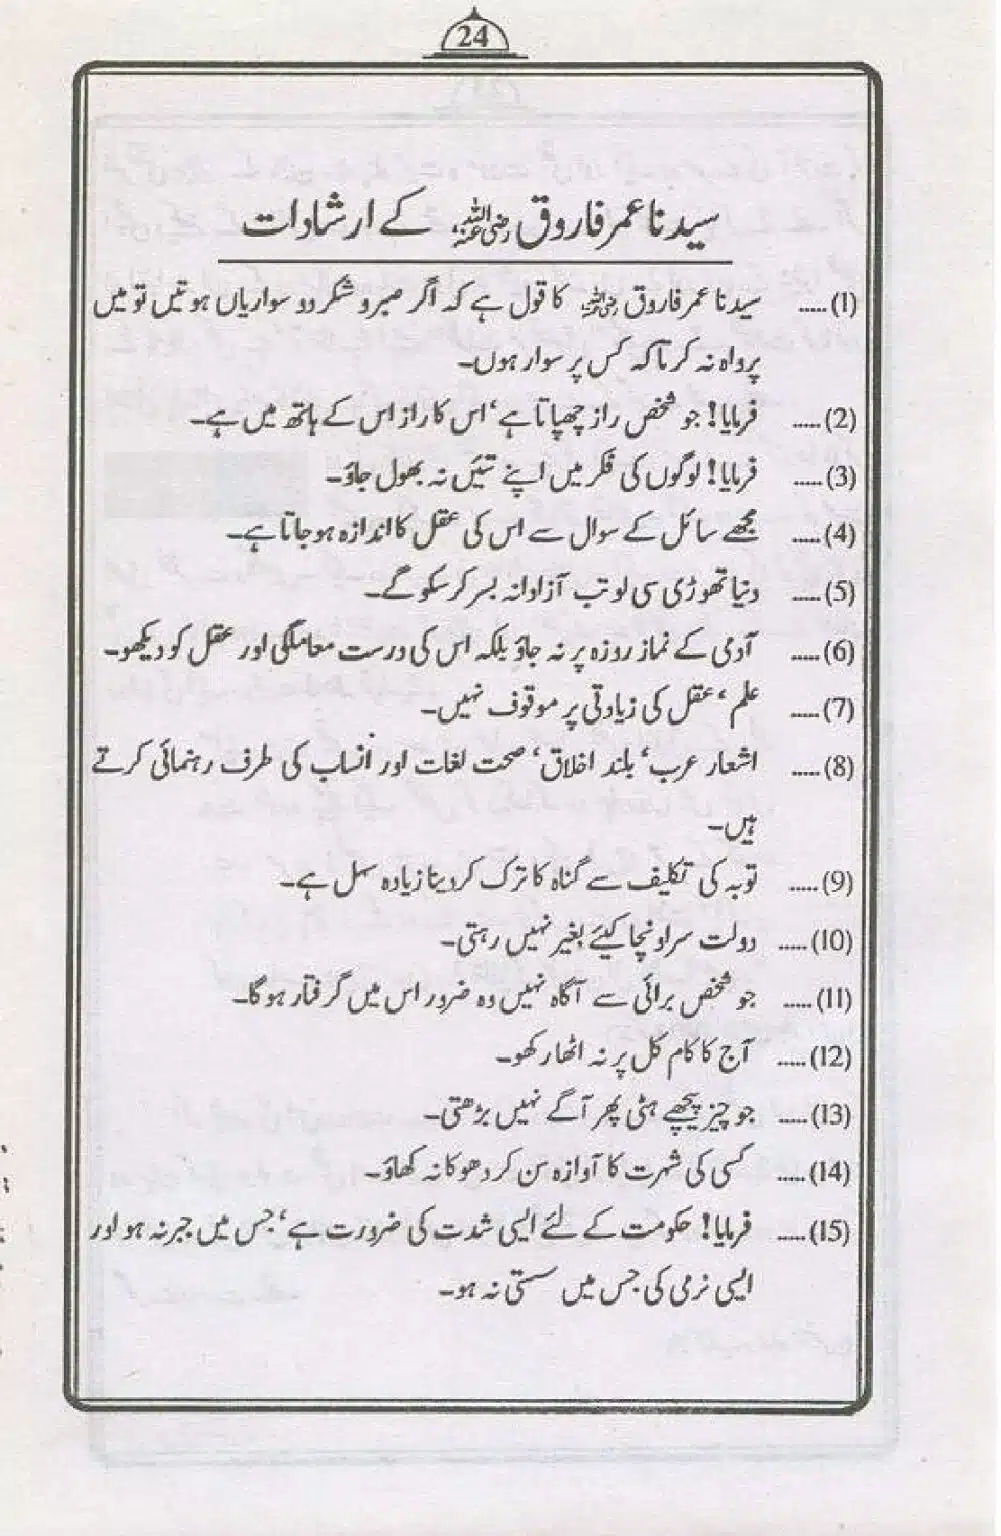 24
سیدنا عمر فاروق رضی اللہ عنہ کے ارشادات
(1)..... سیدنا عمر فاروق رضی اللہ عنہ کا قول ہے کہ اگر صبر و شکر دو سواریاں ہوتیں تو میں
پرواہ نہ کرتا کہ کس پر سوار ہوں۔
(2)..... فرمایا! جو شخص راز چھپاتا ہے، اس کا راز اس کے ہاتھ میں ہے۔
(3)..... فرمایا! لوگوں کی فکر میں اپنے تئیں نہ بھول جاؤ۔
(4)..... مجھے سائل کے سوال سے اس کی عقل کا اندازہ ہو جاتا ہے۔
(5)..... دنیا تھوڑی سی لو تب آزادانہ بسر کر سکو گے۔
(6)..... آدمی کے نماز روزہ پر نہ جاؤ بلکہ اس کی درست معاملگی اور عقل کو دیکھو۔
(7)..... علم، عقل کی زیادتی پر موقوف نہیں۔
(8)..... اشعار عرب، بلند اخلاق، صحت لغات اور انساب کی طرف رہنمائی کرتے
ہیں۔
(9)..... توبہ کی تکلیف سے گناہ کا ترک کر دینا زیادہ سہل ہے۔
(10)..... دولت سر اونچا کیئے بغیر نہیں رہتی۔
(11)..... جو شخص برائی سے آگاہ نہیں وہ ضرور اس میں گرفتار ہو گا۔
(12)..... آج کا کام کل پر نہ اٹھا رکھو۔
(13)..... جو چیز پیچھے ہٹی پھر آگے نہیں بڑھتی۔
(14)..... کسی کی شہرت کا آوازہ سن کر دھوکا نہ کھاؤ۔
(15)..... فرمایا! حکومت کے لئے ایسی شدت کی ضرورت ہے، جس میں جبر نہ ہو اور
ایسی نرمی کی جس میں سستی نہ ہو۔